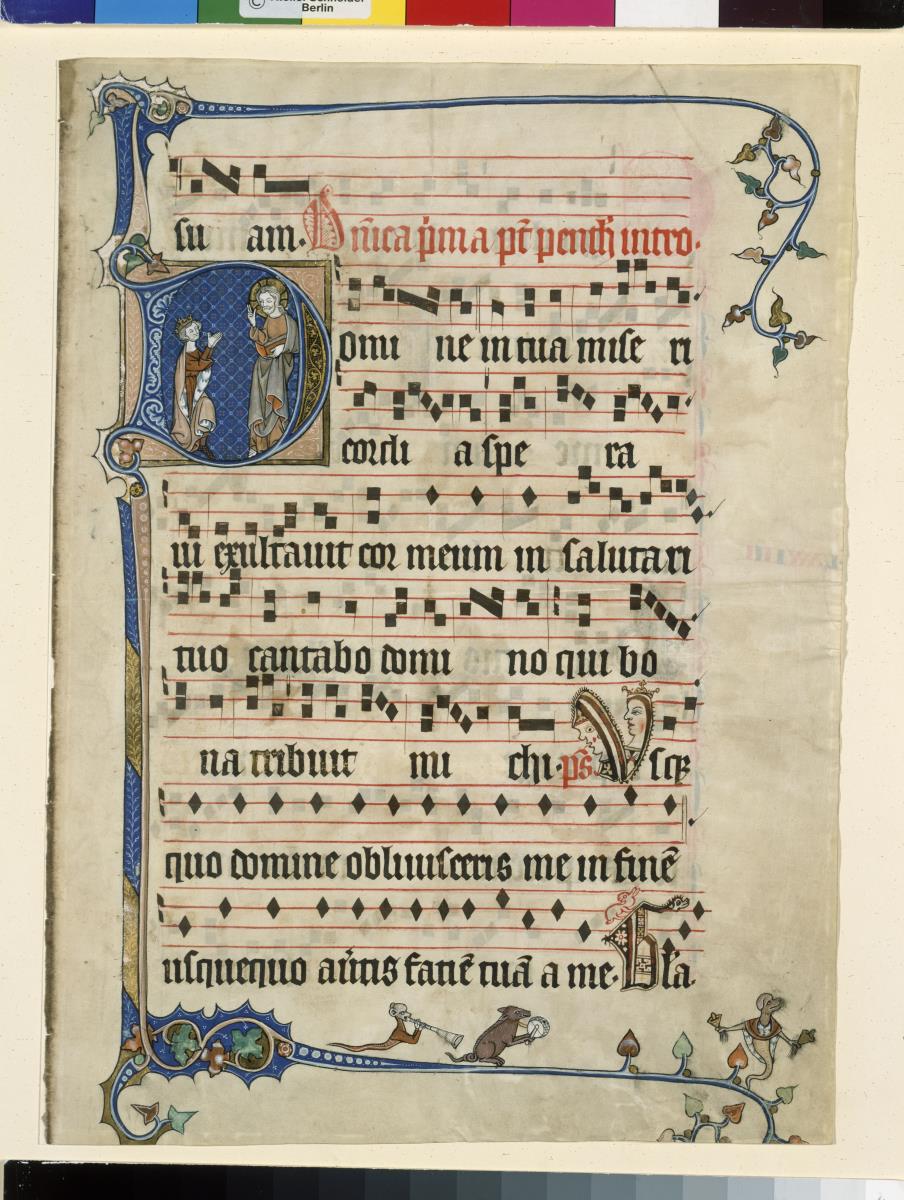 © Atelier Schneider
Berlin
su am. Dn̄ica p̄ma pt̄ penth̄ intro.
omi ne in tua mise ri
cordi a spe ra
ui exultauit cor meum in salutari
tuo cantabo domi no qui bo
na tribuit mi chi. ps̄. Vsq̄
quo domine obliuisceris me in finē
usquequo au̓tis faciē tuā a me. Gl̓a.